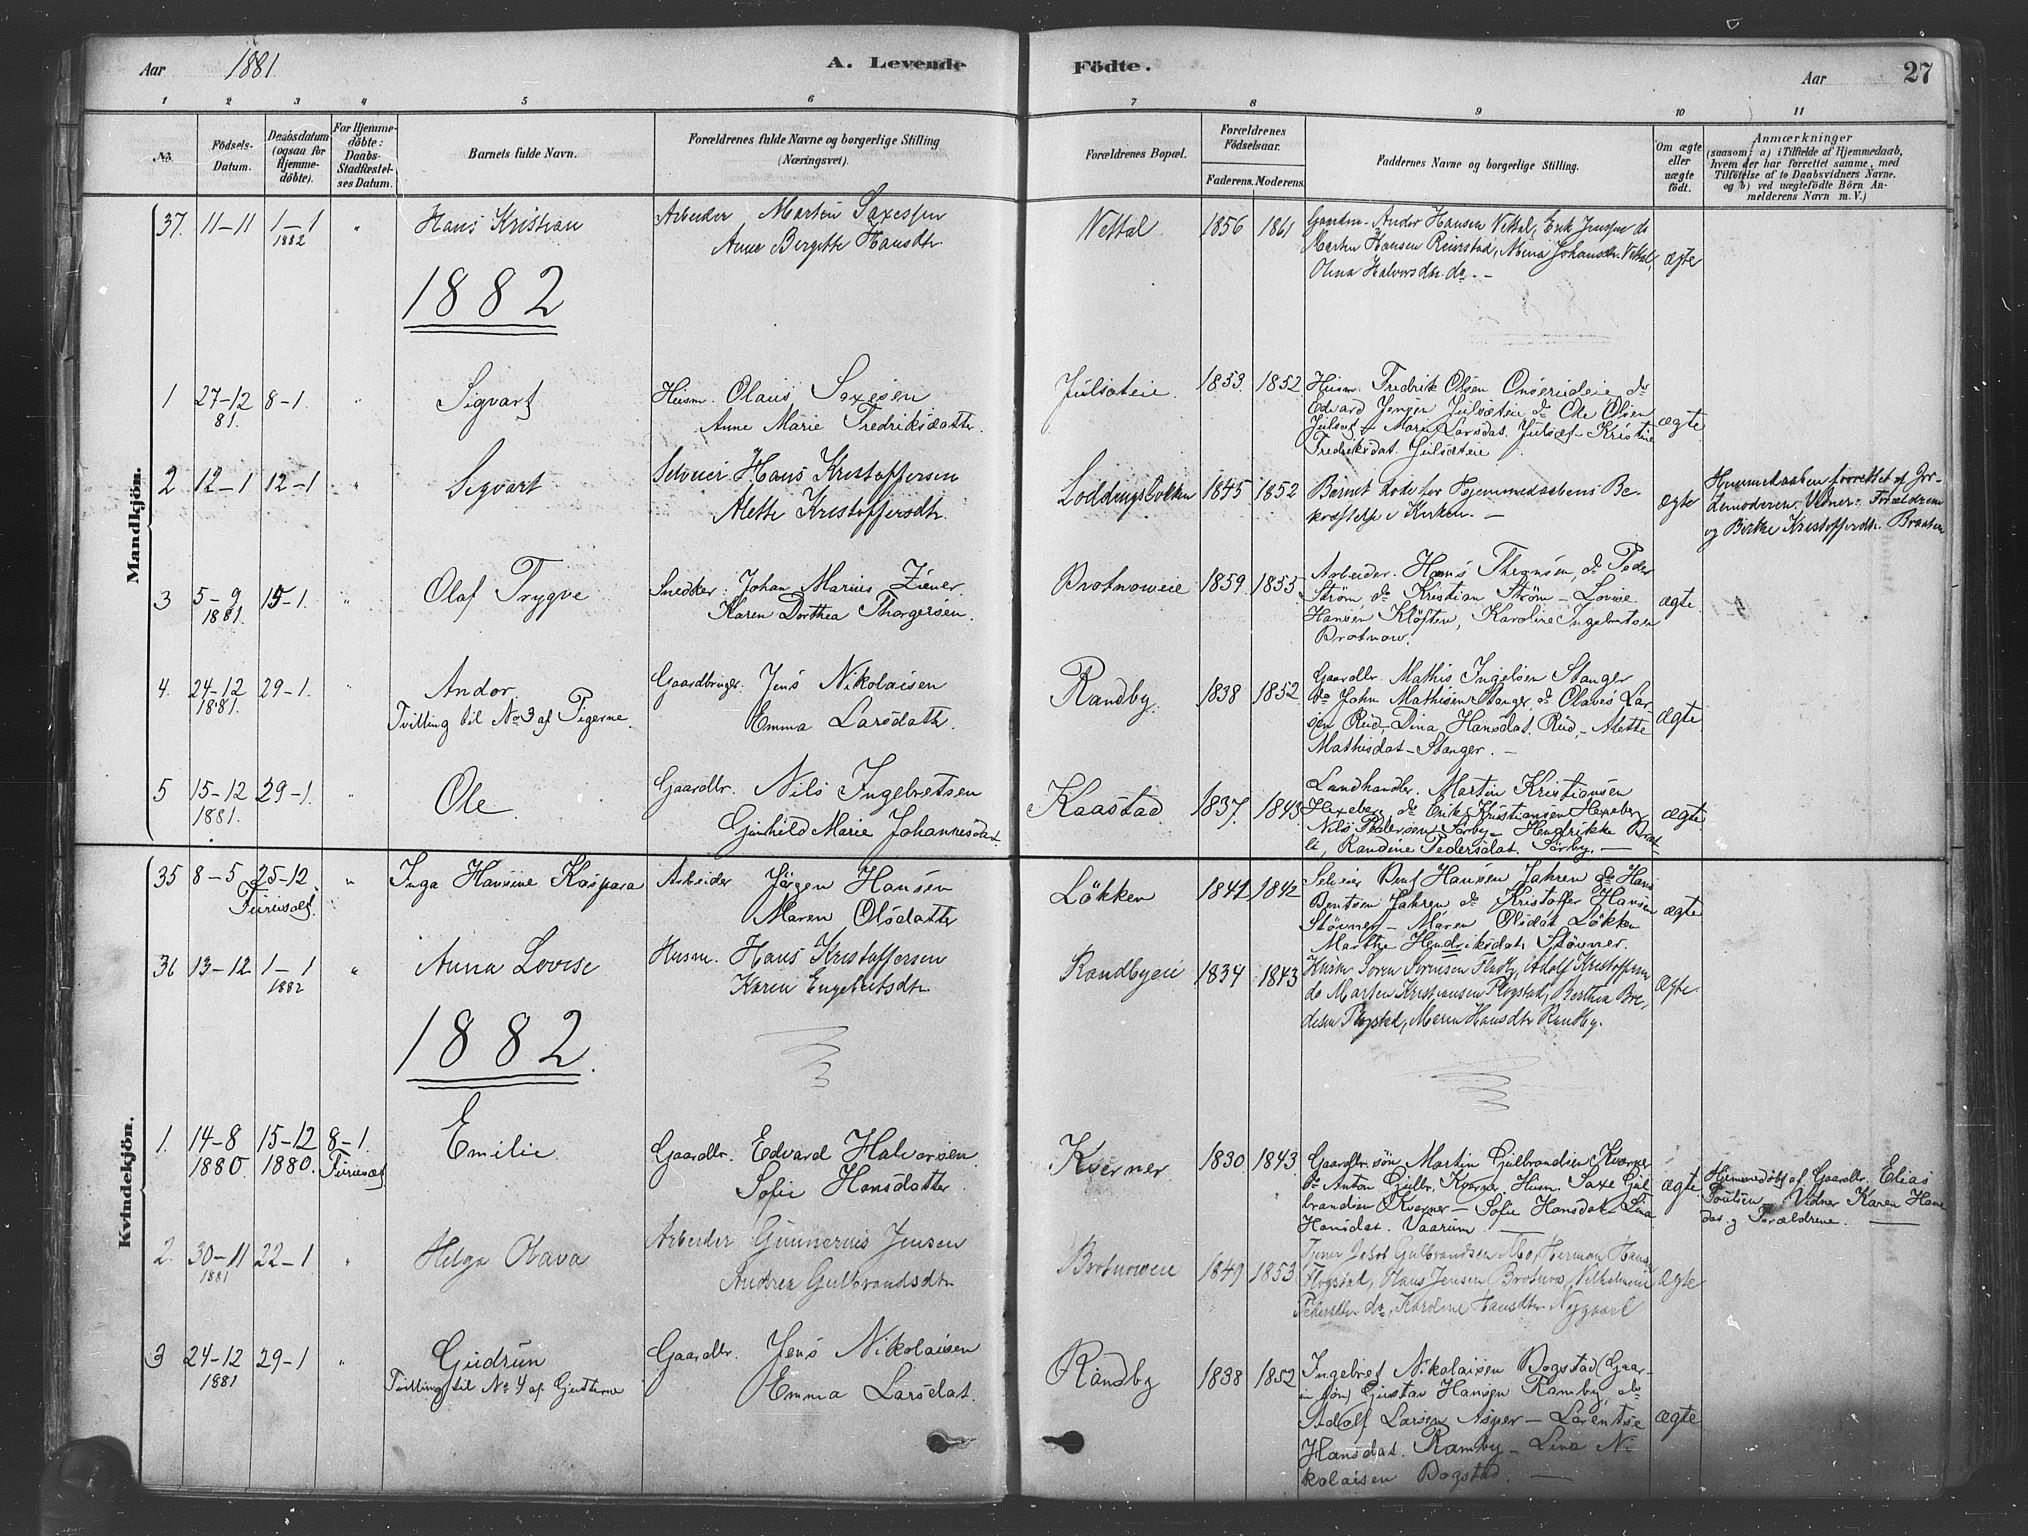 Aar 1881 A. Levende
Födte. Aar 27
1 2 3 4 5 6 7 8 9 10 11
No. Födsels-Datum. Daabsdatum (ogsaa for Hjemme-döbte). For Hjemme-döbte: Daabs-Stadfæstel-ses Datum. Barnets fulde Navn. Forældrenes fulde Navne og borgerlige Stilling (Næringsvei). Forældrenes Bopæl. Forældrenes Födselsaar. Faderens. Moderens. Faddernes Navne og borgerlige Stilling. Om ægte eller uægte födt. Anmærkninger (saasom: a) i Tilfælde af Hjemmedaab, hvem der har forrettet samme, med Tilföielse af to Daabsvidners Navne. og b) ved uægtefödte Börn An-melderens Navn m. V.)
Mandkjön.
37. 11-11 1-1 1882 " Hans Kristian Arbeider Marten Saxesen
Anne Birgitte Hansdtr
Nettal 1856 1861 Gaardm. Andor Hansen Nettal, Erik Jensen do
Marten Hansen Reierstad, Mina Johansdtr. Nettal,
Olina Halvorsdtr. do. — ægte
1882
1 27-12 81. 8-1. " Sigvart Husm. Olaus Saxesen
Anne Marie Fredriksdatter
Julsæteie 1853. 1852. Husm. Fredrik Olsen Onserudeie do
Edvard Jensen Julsæteie do Ole Olsen
Julsæt — Maren Larsdat. Julsæt — Kristine
Fredriksdat. Julsæteie ægte
2 12-1 12-1 " Sigvart Selveier Hans Kristoffersen
Mette Kristoffersdtr.
Loddingsbakken 1845 1852 Barnet döde för Hjemmedaabens Be-
kræftelse i Kirken. — ægte
Hjemmedaaben forrettet af Jor-
demoderen. Vidner: Forældrene
og Birthe Kristoffersdtr. Braaten
3 5-9 1881. 15-1. " Olaf Trygve Snedker: Johan Marius Ziener.
Karen Dorthea Thorgersen.
Brotnoweie 1859 1855. Arbeider. Hans Thronsen, do Peder
Ström, do Kristian Ström — Lovise
Hansen Klöften, Karoline Ingebretsen
Brotnow. ægte.
4. 24-12 1881. 29-1. " Andor. Gaardbruger. Jens Nikolaisen
Tvilling til No 3 af Pigerne. Emma Larsdatter.
Randby. 1838 1852 Gaardbr. Mathis Ingelsen Stanger
do John Mathisen Stanger. do Olaves Lar-
sen Rud, — Dina Hansdat. Rud, — Mette
Mathisdat — Stanger. — Ægte.
5 15-12 1881. 29-1. " Ole. Gaardbr. Nils Ingebretsen
Gunhild Marie Johannesdat.
Kaastad 1837. 1843. Landhandler. Martin Kristiansen
Haxeberg, do Erik Kristiansen Haxeberg
Nils Pedersen Sörby — Hendrikke Brat-
li, Randine Pedersdat. Sörby. — ægte.
Kvindekjön.
35 8-5 25-12 Furuset. " Inga Hansine Kaspara Arbeider Jörgen Hansen
Maren Olsdatter
Lökken 1841 1842 Selveier Bent Hansen Jahren do Hans
Bentsen Jahren do Kristoffer Hansen
Stövner — Maren Olsdat Lökken
Marthe Hendriksdatr. Stövner. ægte
36 13-12 1-1 1882 " Anna Lovise Husm. Hans Kristoffersen
Karen Engebretsdtr
Randbyeie 1834 1843 Kirkes. Soren Sorensen Fladby, Adolf Kristoffersen
do Marten Kristiansen Plogstad, Berthea Bre-
desen Plogstad, Maren Hansdtr Randby. Ægte.
1882.
1. 14-8 1880. 15-12 1880. 8-1. Furuset Emilie Gaardbr. Edvard Halvorsen.
Sofie Hansdatter.
Kverner 1830 1843 Gaardbr. sön Martin Gulbrandsen Kverner
do Anton Gulbr. Kverner. Husm. Saxe Gul-
brandsen Kverner — Sofie Hansdat — Lina
Hansdat. Vaarum. — ægte
Hjemmedöbt af Gaardbr. Elias
Poulsen — Vidner Karen Hans
dat. og Forældrene. —
2. 30-11 1881 22-1 " Helga Olava Arbeider Gunnerius Jensen
Andrea Gulbrandsdtr
Brotnoweie 1849 1853 Tjener Jakob Gulbrandsen Mo, Herman Hans
Flogstad, Hans Jensen Brotnow, Vilhelmine
Pedersdtr do, Karoline Hansdtr. Nygaard Ægte
3 24-12 1881 29-1 " Gudrun Gaardbr. Jens Nikolaisen
Tvilling til No 4 af Gutterne Emma Larsdat.
Randby 1838 1852 Ingebret Nikolaisen Bogstad (Gaar-
m sön) Gustav Hansen Ramby, do
Adolf Larsen Asper — Lorentse
Hansdat. Ramby — Lina Ni-
kolaisen Bogstad. — ægte